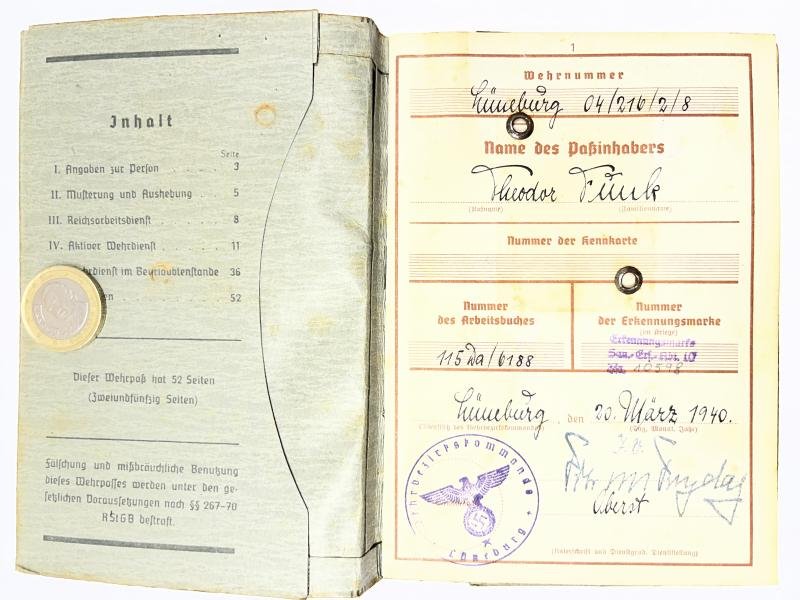 Inhalt
Seite
I. Angaben zur Person . . 3
II. Musterung und Aushebung . 5
III. Reichsarbeitsdienst . . 8
IV. Aktiver Wehrdienst . . 11
im Beurlaubtenstande 36
52
Dieser Wehrpaß hat 52 Seiten
(Zweiundfünfzig Seiten)
Fälschung und mißbräuchliche Benutzung
dieses Wehrpasses werden unter den ge-
setzlichen Voraussetzungen nach §§ 267–70
RStGB bestraft.
1
Wehrnummer
Lüneburg 04/216/2/8
Name des Paßinhabers
Theodor Funk
(Rufname) (Familienname)
Nummer der Kennkarte
Nummer
des Arbeitsbuches
115 Da/6188
Nummer
der Erkennungsmarke
(im Kriege)
Erkennungsmarke
San.-Ers.-Abt. 10
10598
Lüneburg, den 20. März 1940.
(Dienstsitz des Wehrbezirkskommandos) (Tag, Monat, Jahr)
Oberst
Wehrbezirkskommando
Lüneburg
(Unterschrift und Dienstgrad, Dienststellung)